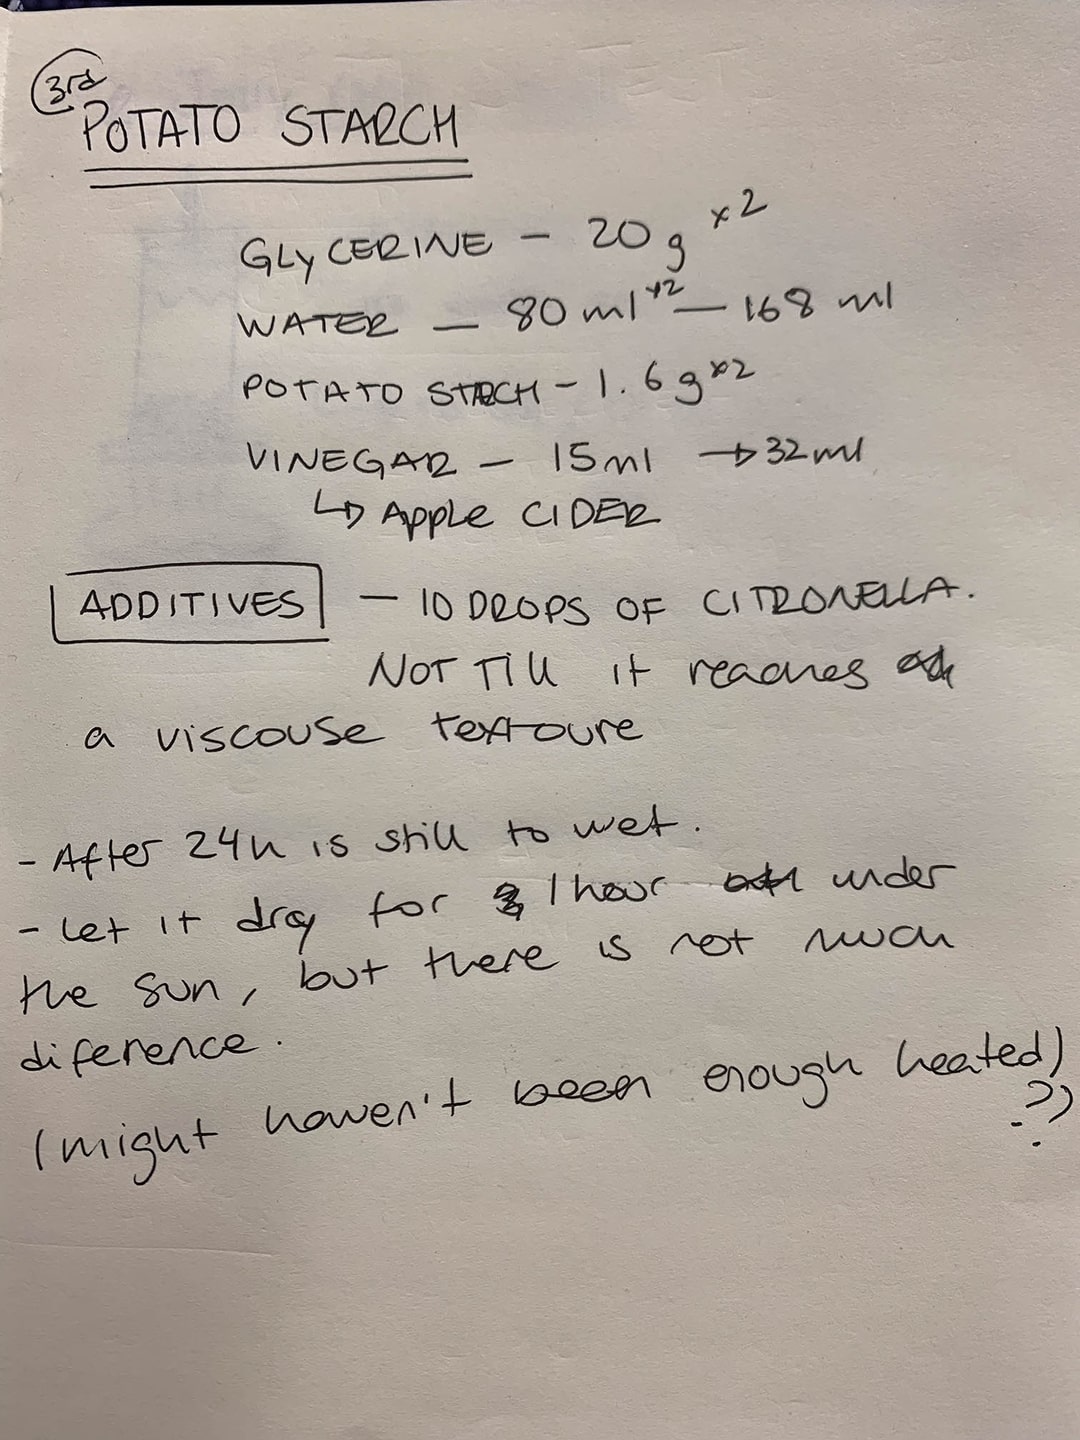 3rd
POTATO STARCH
GLYCERINE - 20g x2
WATER - 80 ml x2 - 168 ml
POTATO STARCH - 1.6g x2
VINEGAR - 15ml → 32ml
↳ Apple CIDER
ADDITIVES - 10 DROPS OF CITRONELLA.
NOT Till it reaches
a viscouse textoure
- After 24h is still to wet.
- Let it dry for 1 hour under
the sun, but there is not much
diference.
(might haven't been enough heated)
??